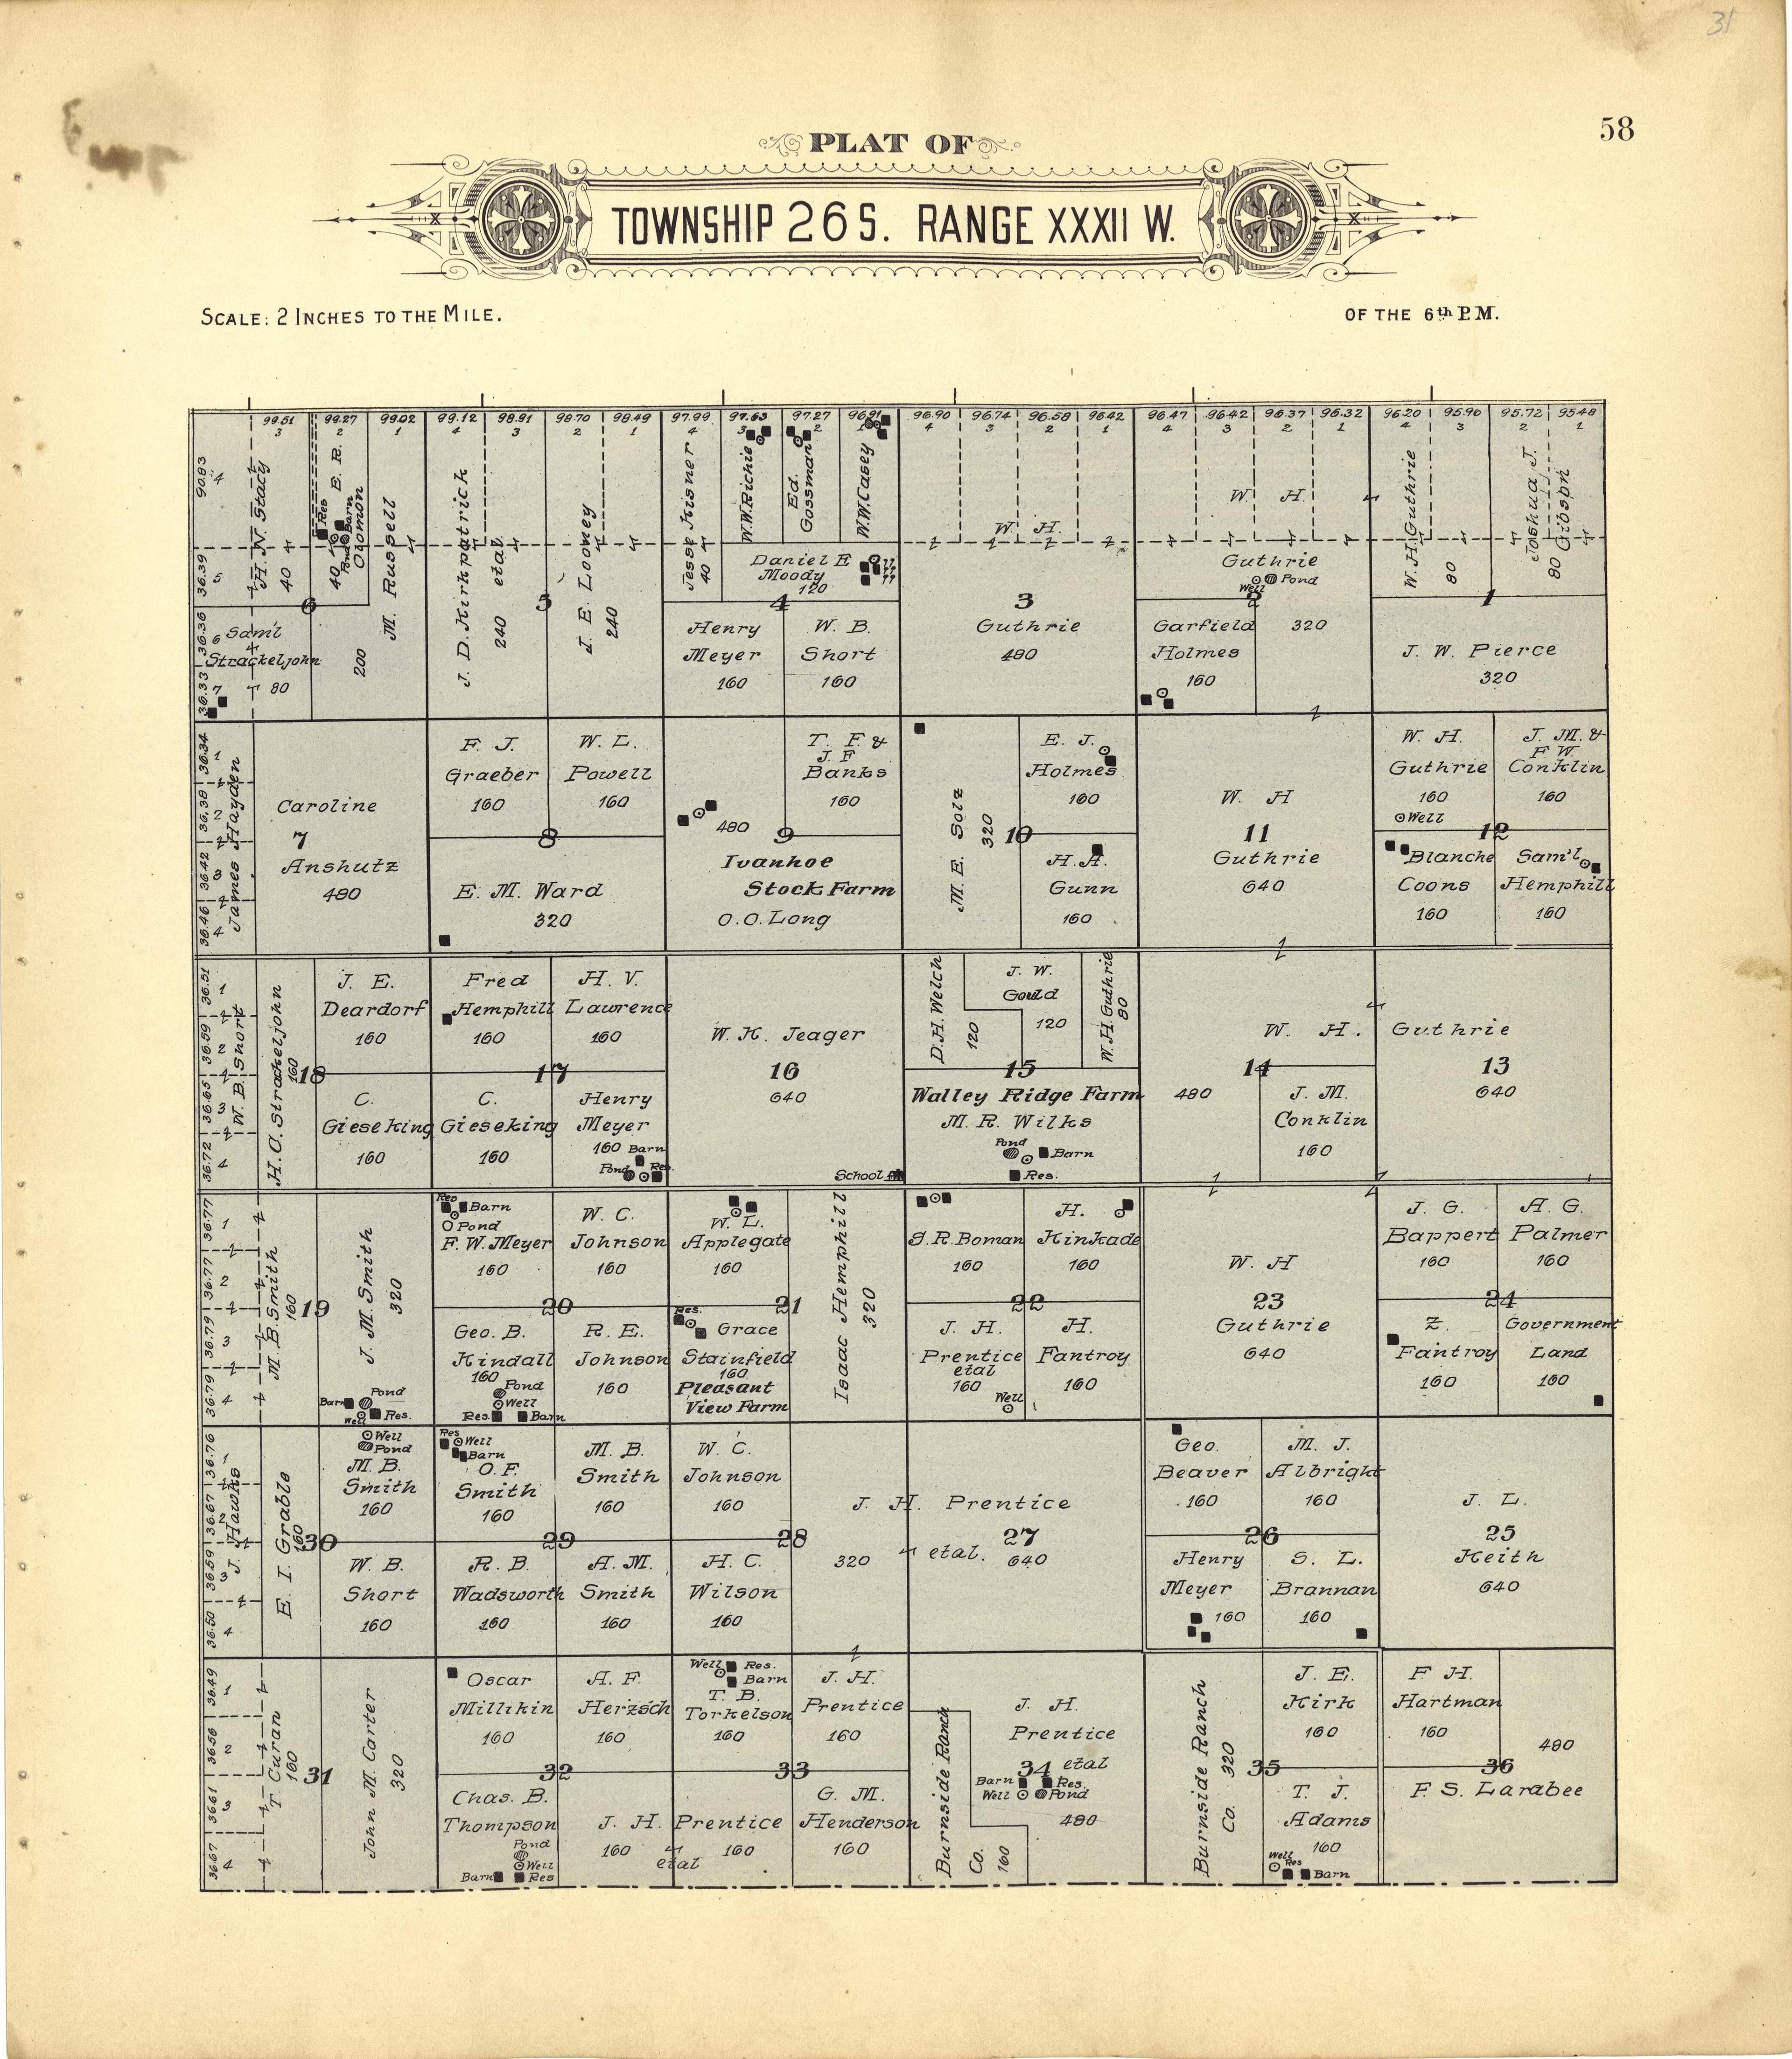 31
58
PLAT OF
TOWNSHIP 26 S. RANGE XXXII W.
SCALE: 2 INCHES TO THE MILE.
OF THE 6th P.M.
99.51 99.27 99.02 99.12 98.91 98.70 98.49 97.99 97.63 97.27 96.91 96.90 96.74 96.58 96.42 96.47 96.42 96.37 96.32 96.20 95.96 95.72 95.48
3 2 1 4 3 2 1 4 3 2 1 4 3 2 1 4 3 2 1 4 3 2 1
90.83
4
36.39
5
36.36
6
36.33
7
H. N. Stacy
40
E. R.
Olomon
40
Res
Barn
Pond
M. Russell
200
6
Sam'l
Strackeljohn
80
J. D. Kirkpatrick
etal
240
5
I. E. Looney
240
Jesse Kisner
40
W. W. Richie
Ed.
Gossman
W. W. Casey
Daniel E
Moody
120
4
Henry
Meyer
160
W. B.
Short
160
W. H.
3
Guthrie
480
W. H.
Guthrie
Well
Pond
2
Garfield
Holmes
160
320
W. H. Guthrie
80
Joshua J.
Gibson
80
1
J. W. Pierce
320
36.34
1
36.38
2
36.42
3
36.46
4
James Hayden
Caroline
7
Anshutz
480
F. J.
Graeber
160
W. L.
Powell
160
8
E. M. Ward
320
T. F. &
J. F
Banks
160
480
9
Ivanhoe
Stock Farm
O. O. Long
M. E. Solz
320
10
E. J.
Holmes
160
H. A.
Gunn
160
W. H
11
Guthrie
640
W. H.
Guthrie
160
Well
J. M. &
F. W.
Conklin
160
12
Blanche
Coons
160
Sam'l
Hemphill
160
36.51
1
36.59
2
36.65
3
36.72
4
W. B. Short
H. C. Strackeljohn
160
18
J. E.
Deardorf
160
C.
Gieseking
160
Fred
Hemphill
160
H. V.
Lawrence
160
17
C.
Gieseking
160
Henry
Meyer
160 Barn
Pond Res.
W. K. Jeager
16
640
School
D. H. Welch
120
J. W.
Gould
120
W. H. Guthrie
80
15
Walley Ridge Farm
M. R. Wilks
Pond
Barn
Res.
W. H. Guthrie
14
480
J. M.
Conklin
160
13
640
36.77
1
36.77
2
36.79
3
36.79
4
M. B. Smith
160
19
J. M. Smith
320
Barn
Pond
Well
Res.
Res
Barn
Pond
F. W. Meyer
160
W. C.
Johnson
160
20
Geo. B.
Kindall
160
Pond
Well
Res. Barn
R. E.
Johnson
160
W. L.
Applegate
160
21
Res.
Grace
Stainfield
160
Pleasant
View Farm
Isaac Hemphill
320
S. R. Boman
160
H.
Kinkade
160
22
J. H.
Prentice
etal
160
Well
H.
Fantroy
160
W. H
23
Guthrie
640
J. G.
Bappert
160
A. G.
Palmer
160
24
Z.
Fantroy
160
Government
Land
160
36.76
1
36.67
2
36.59
3
36.50
4
J. Hawks
E. I. Grable
160
30
Well
Pond
M. B.
Smith
160
W. B.
Short
160
Res
Well
Barn
O. F.
Smith
160
M. B.
Smith
160
29
R. B.
Wadsworth
160
A. M.
Smith
160
W. C.
Johnson
160
28
H. C.
Wilson
160
J. H. Prentice
320
27
etal.
640
Geo.
Beaver
160
M. J.
Albright
160
26
Henry
Meyer
160
S. L.
Brannan
160
J. L.
25
Keith
640
36.49
1
36.56
2
36.61
3
36.67
4
T. Curan
160
31
John M. Carter
320
Oscar
Millikin
160
A. F.
Herzsch
160
32
Chas. B.
Thompson
Pond
Well
Barn Res
Well Res.
Barn
T. B.
Torkelson
160
J. H.
Prentice
160
33
J. H. Prentice
160 160
etal
G. M.
Henderson
160
Burnside Ranch
Co.
160
J. H.
Prentice
34 etal
Barn Res.
Well Pond
480
Burnside Ranch
Co. 320
35
J. E.
Kirk
160
T. J.
Adams
160
Well
Res
Barn
F. H.
Hartman
160
480
36
F. S. Larabee